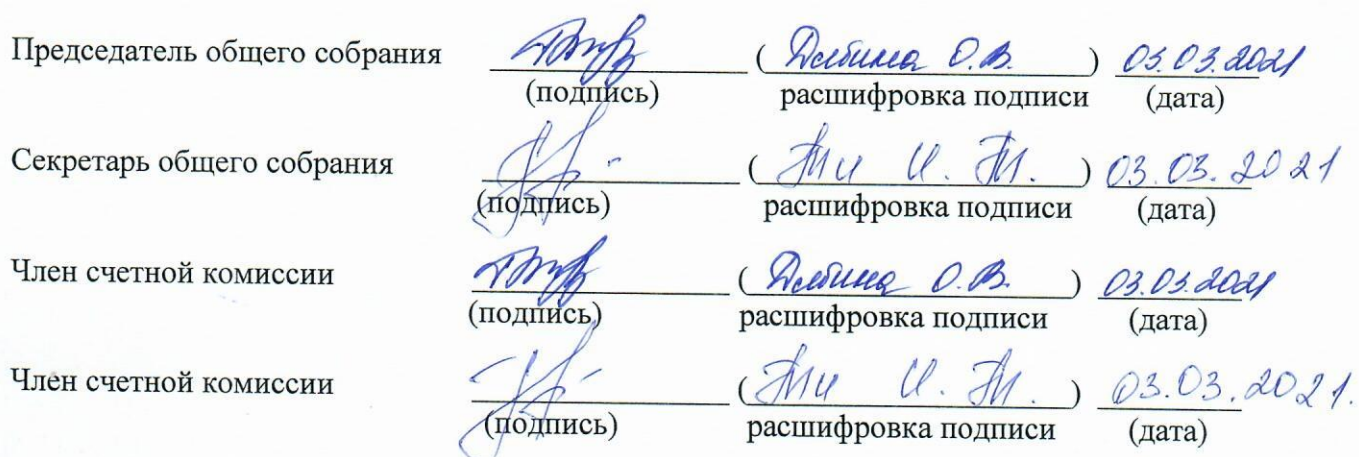 Председатель общего собрания ( О.В. ) 03.03.2021
(подпись) расшифровка подписи (дата)
Секретарь общего собрания ( Ти И. Т. ) 03.03.2021
(подпись) расшифровка подписи (дата)
Член счетной комиссии ( О.В. ) 03.03.2021
(подпись) расшифровка подписи (дата)
Член счетной комиссии ( Ти И. Т. ) 03.03.2021.
(подпись) расшифровка подписи (дата)